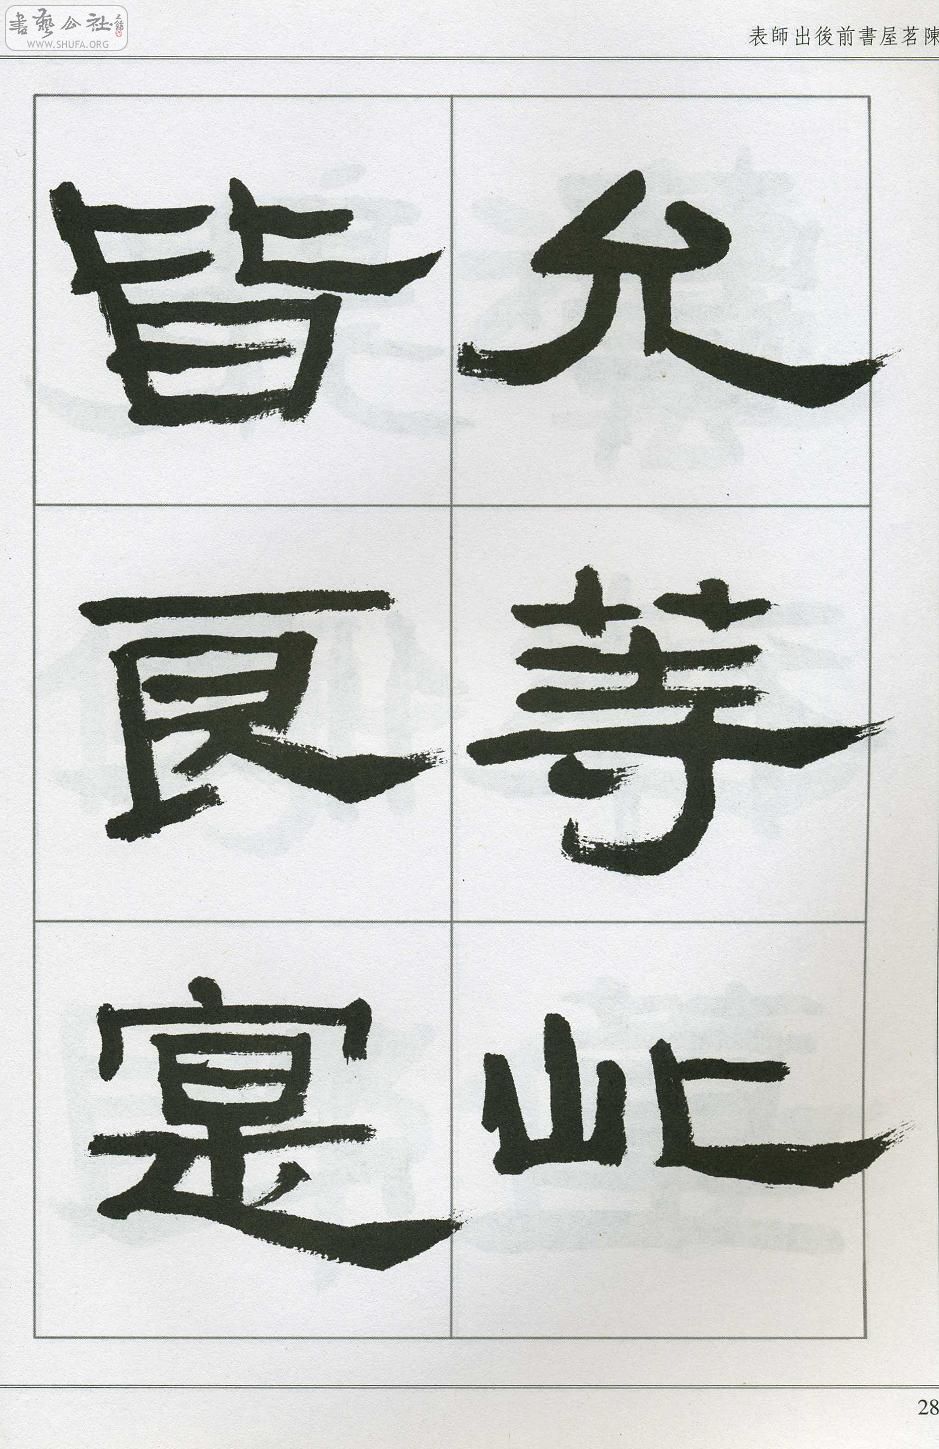 書藝公社
WWW.SHUFA.ORG
陳茗屋書前後出師表
允等此
皆良寔
28